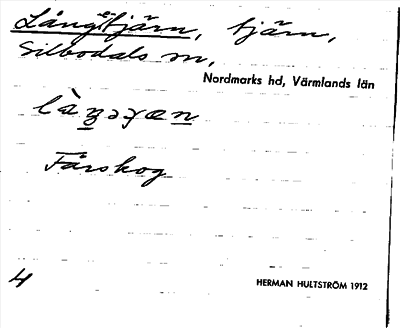 Långetjärn, tjärn,
Silbodals sn,
Nordmarks hd, Värmlands län
Fårskog
4
HERMAN HULTSTRÖM 1912